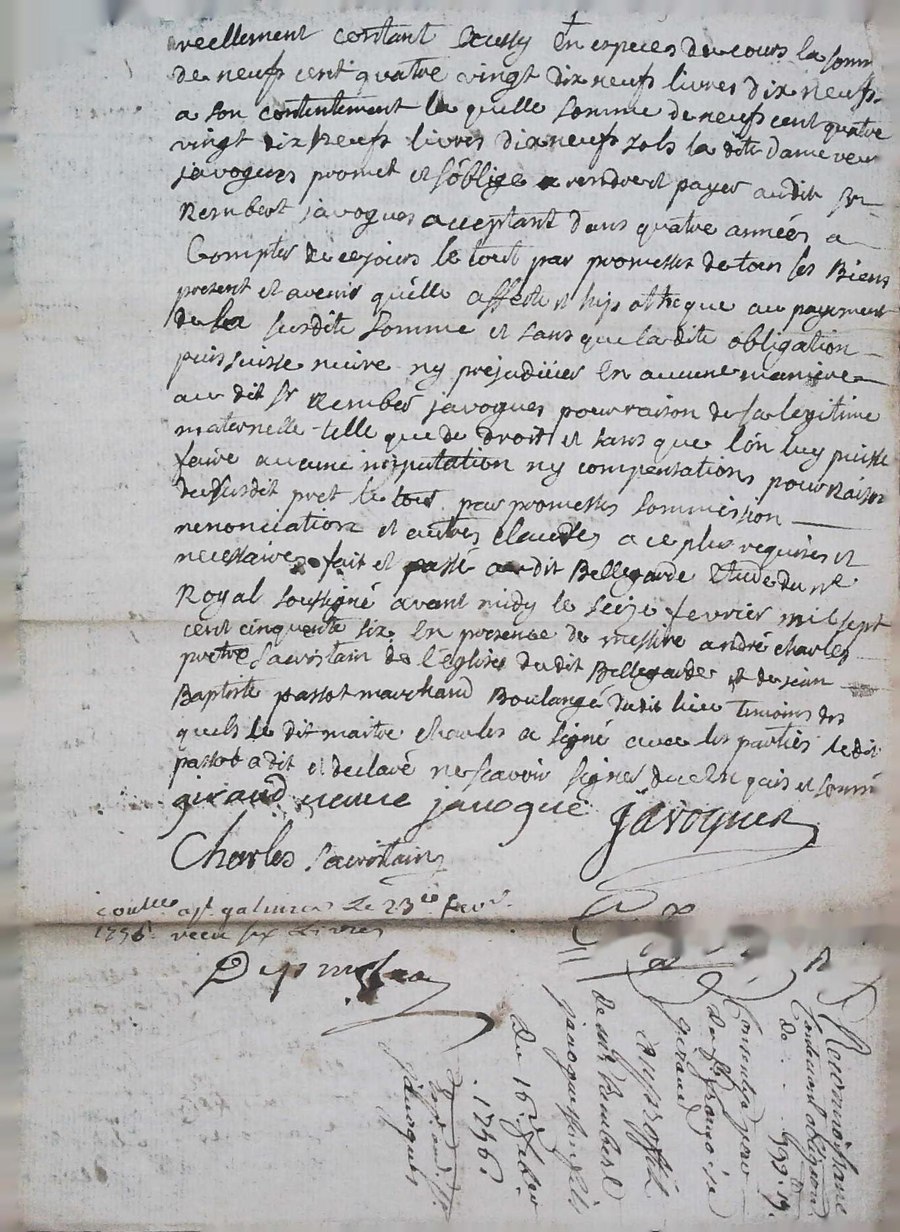 reellement contant Exussy En especes de cours la som
de neufs cent quatre vingt dix neufs livres dix neufs
a son contentement la quelle somme de neufs cent quatre
vingt dix neufs livres dix neufs sols la dite dame veu
javogues promet et s'oblige a rendre et payer au dit Sr
Rembert javogues acceptant dans quatre années a
Compter de ce jours le tout par promesses de tous les Biens
present et avenir qu'elle affecte et hipotheque au payement
de la susdite somme et sans que la dite obligation
puissuisse nuire ny prejudicier En aucune maniere
au dit Sr Rember javogues pour raison de sa legitime
maternelle telle que de droit et sans que l'on luy puisse
faire aucune imputation ny compensations pour Raison
du susdit pret le tout par promesses sommission
renonciation et autres clauses a ce plus requises et
necessaires fait et passé au dit Bellegarde Etude du nre
Royal soussigné avant midy le seize fevrier mil sept
cent cinquante six En presence de messire andré charles
pretre Sacristain de l'eglises du dit Bellegarde et de jean
Baptiste passot marchand Boulangé du dit lieu temoins des
quels le dit maitre charles a signé avec les parties le dit
passot a dit et declaré ne scavoir signer de ce Enquis et sommé
giraud veuve javogue javogues
Charles Sacristain
a st galmier Le 23ie fevr.
1756 receu six Livres
Reconnoissance
de 999 19
de
giraud
de Sr Rembert
javogues fils
Du 16 fevrier
1756.
javogues